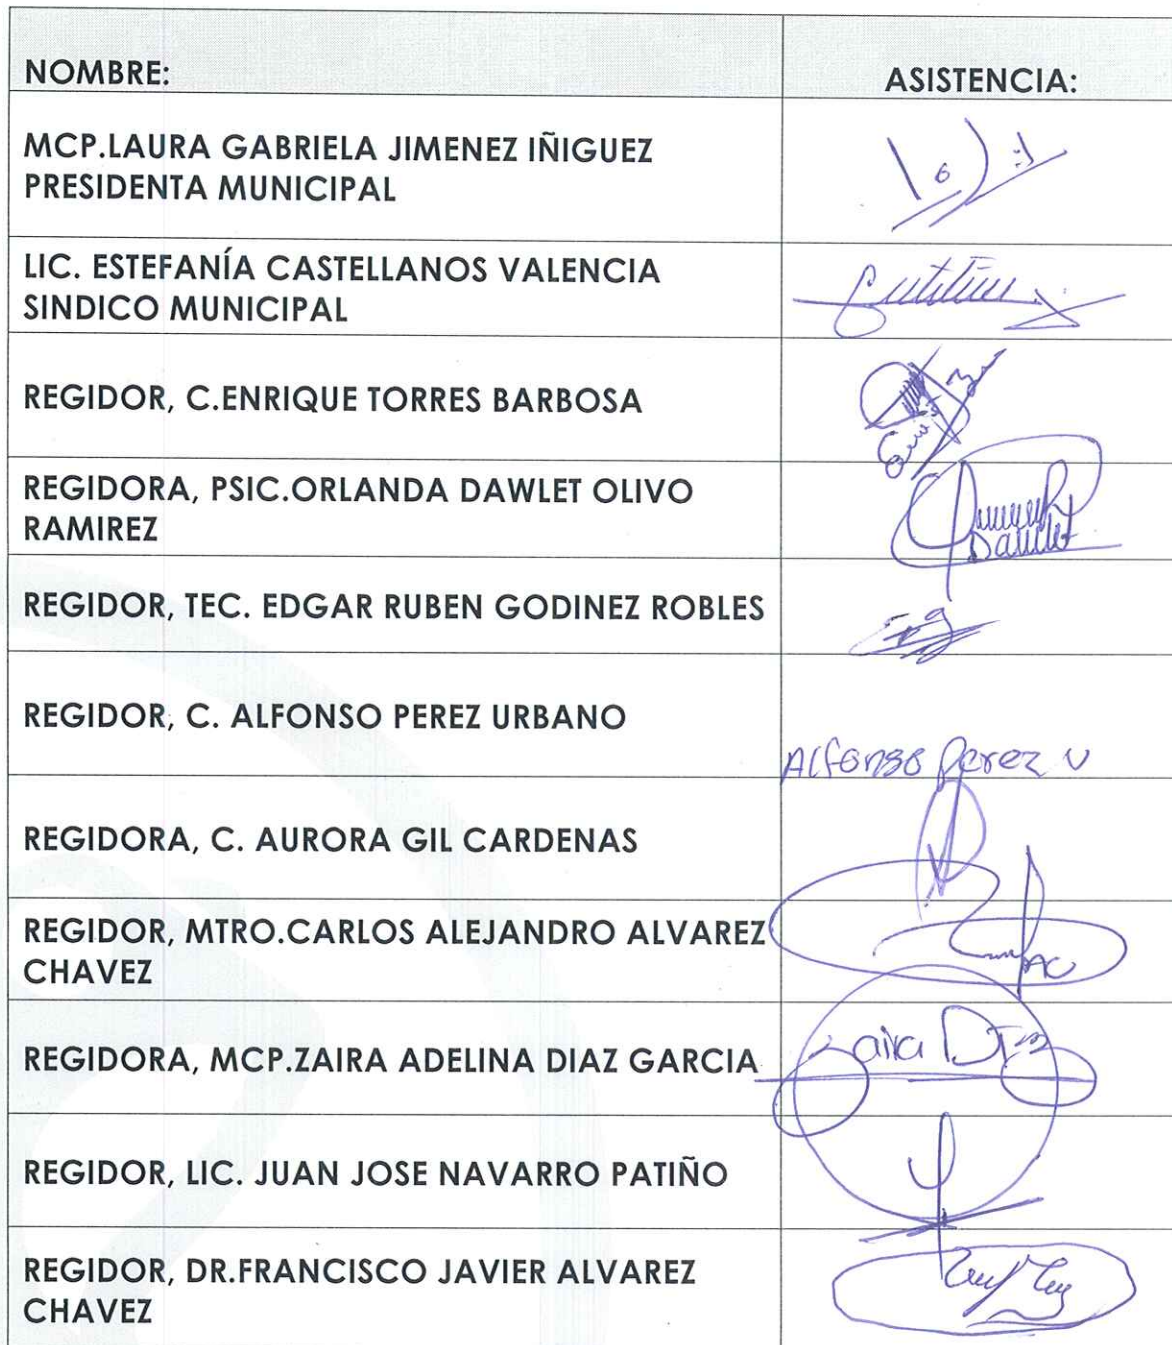 NOMBRE: ASISTENCIA:
MCP.LAURA GABRIELA JIMENEZ IÑIGUEZ
PRESIDENTA MUNICIPAL
LIC. ESTEFANÍA CASTELLANOS VALENCIA
SINDICO MUNICIPAL
REGIDOR, C.ENRIQUE TORRES BARBOSA
REGIDORA, PSIC.ORLANDA DAWLET OLIVO
RAMIREZ
Dawlet
REGIDOR, TEC. EDGAR RUBEN GODINEZ ROBLES
REGIDOR, C. ALFONSO PEREZ URBANO
Alfonso Perez U
REGIDORA, C. AURORA GIL CARDENAS
REGIDOR, MTRO.CARLOS ALEJANDRO ALVAREZ
CHAVEZ
REGIDORA, MCP.ZAIRA ADELINA DIAZ GARCIA
Zaira Diaz
REGIDOR, LIC. JUAN JOSE NAVARRO PATIÑO
REGIDOR, DR.FRANCISCO JAVIER ALVAREZ
CHAVEZ